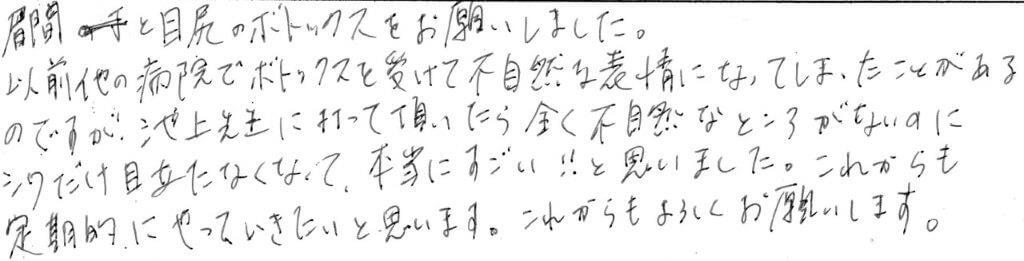 眉間と目尻のボトックスをお願いしました。
以前他の病院でボトックスを受けて不自然な表情になってしまったことがある
のですが、池上先生に打って頂いたら全く不自然なところがないのに
シワだけ目立たなくなって、本当にすごい!!と思いました。これからも
定期的にやっていきたいと思います。これからもよろしくお願いします。